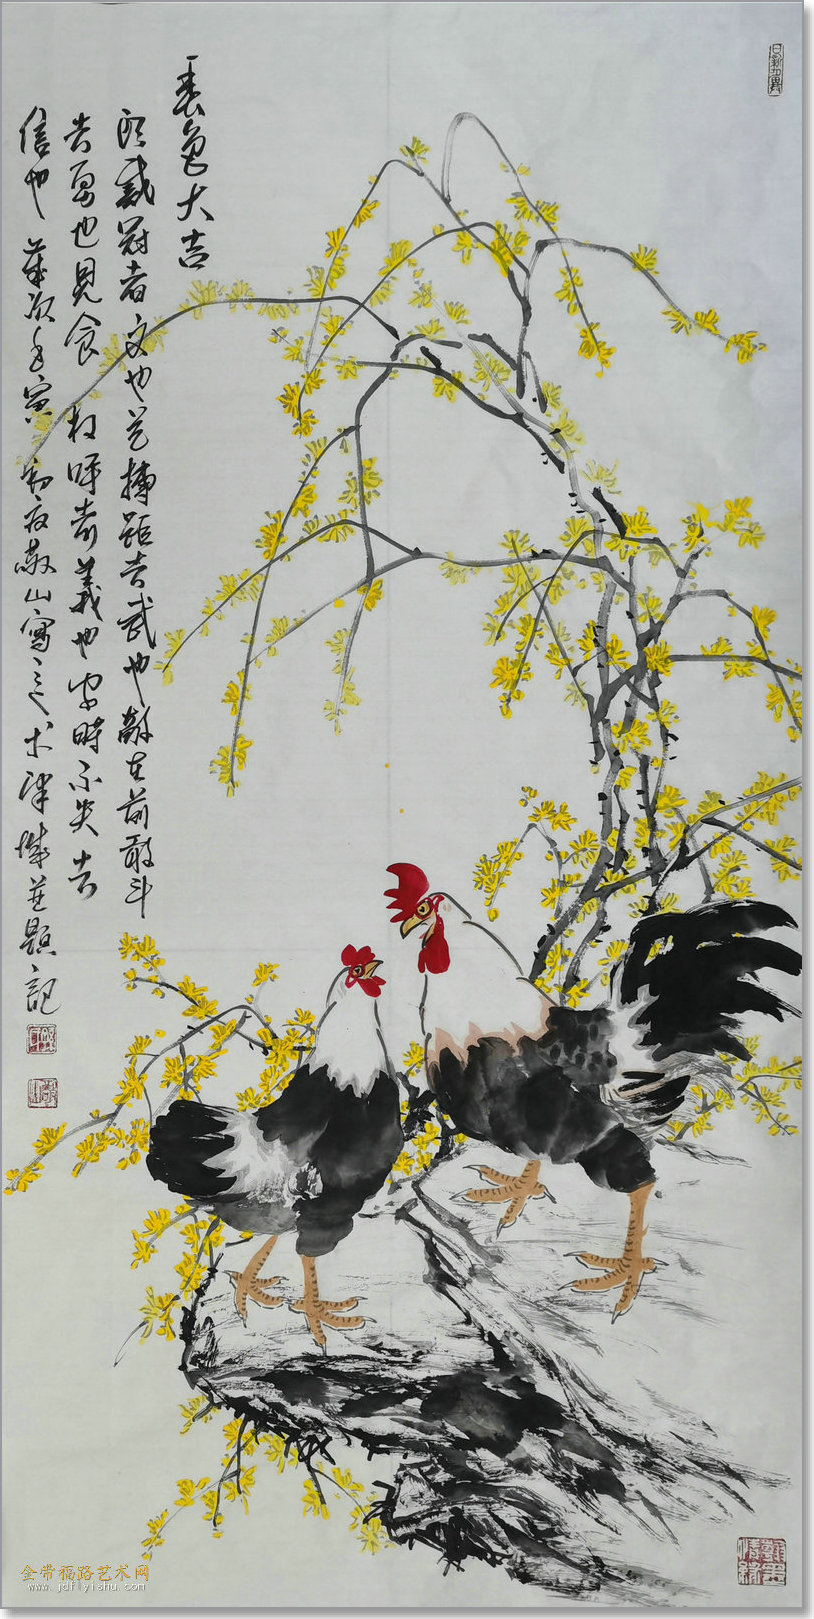 春色大吉
頭戴冠者文也足搏距者武也敵在前敢斗
者勇也見食相呼者義也守時不失者
信也 歲次壬寅初夏敬山寫之於津城並題記
金带福路艺术网
www.jdflyishu.com